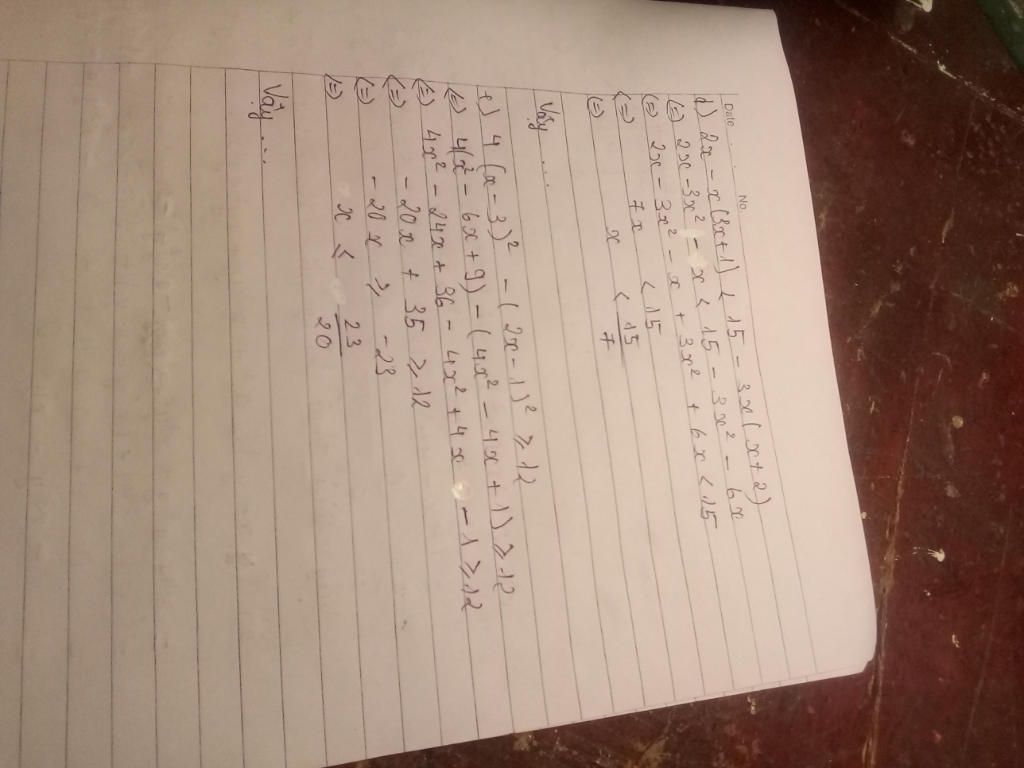 Date
No.
d) 2x - x(3x+1) < 15 - 3x(x+2)
(=) 2x - 3x² - x < 15 - 3x² - 6x
(=) 2x - 3x² - x + 3x² + 6x < 15
(=) 7x < 15
(=) x < 15/7
Vậy ...
f) 4(x-3)² - (2x-1)² ≥ 12
(=) 4(x² - 6x + 9) - (4x² - 4x + 1) ≥ 12
(=) 4x² - 24x + 36 - 4x² + 4x - 1 ≥ 12
(=) - 20x + 35 ≥ 12
(=) - 20x ≥ - 23
(=) x ≤ 23/20
Vậy ...